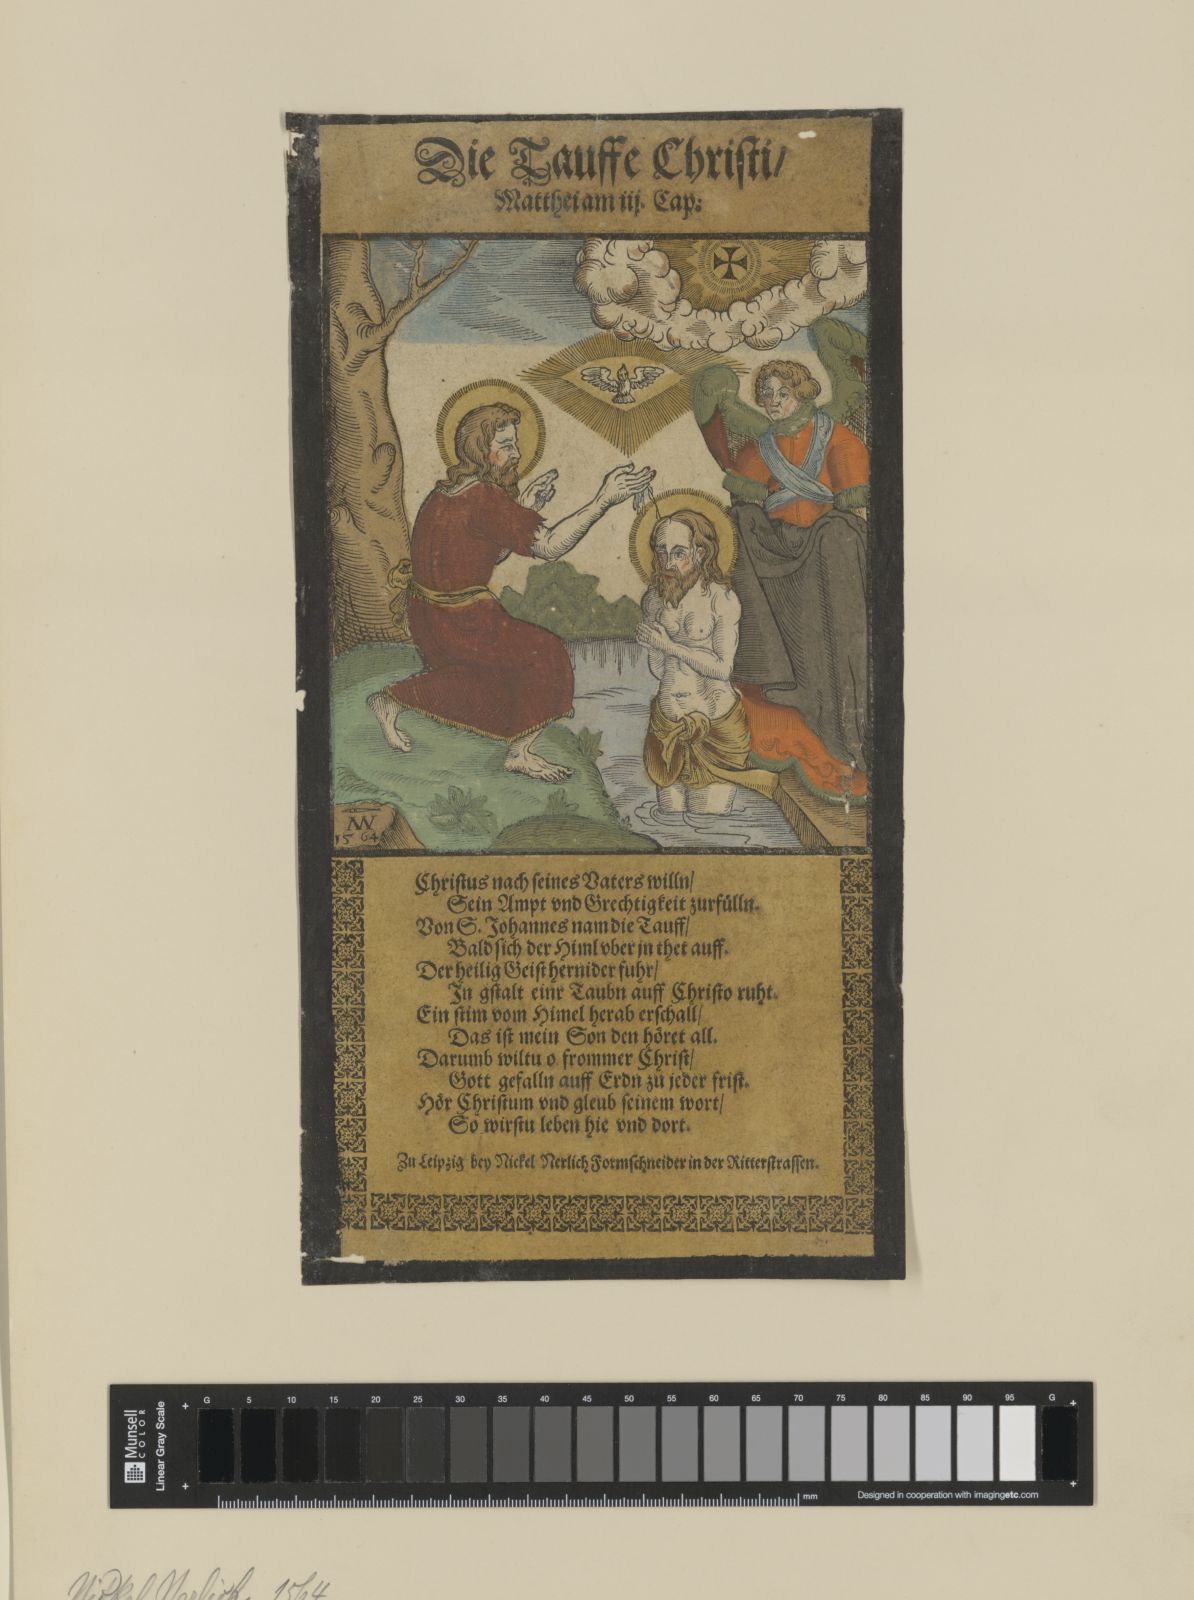 Die Tauffe Christi/
Matthei am iij. Cap:
NN
1564
Christus nach seines Vaters willn/
Sein Ampt vnd Grechtigkeit zurfülln.
Von S. Johannes nam die Tauff/
Bald sich der Himl vber jn thet auff.
Der heilig Geist hernider fuhr/
In gstalt einr Taubn auff Christo ruht.
Ein stim vom Himel herab erschall/
Das ist mein Son den höret all.
Darumb wiltu o frommer Christ/
Gott gefalln auff Erdn zu jeder frist.
Hör Christum vnd gleub seinem wort/
So wirstu leben hie vnd dort.
Zu Leipzig bey Nickel Nerlich Formschneider in der Ritterstrassen.
Munsell
COLOR
Linear Gray Scale
G 5 10 15 20 25 30 35 40 45 50 55 60 65 70 75 80 85 90 95 G
mm
Designed in cooperation with imagingetc.com
Nickel Nerlich. 1564